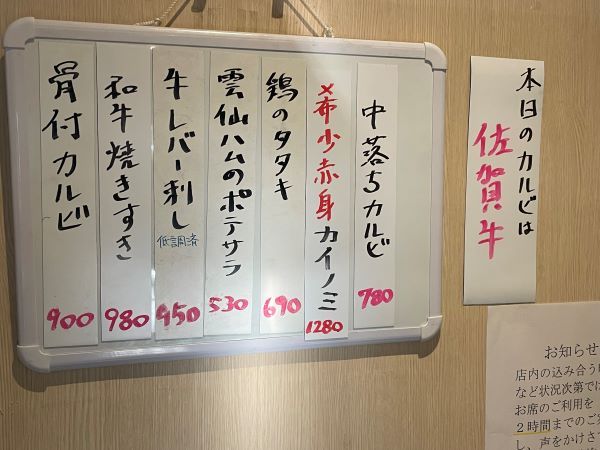 本日のカルビは
佐賀牛
中落ちカルビ
780
希少赤身カイノミ
1280
鶏のタタキ
690
雲仙ハムのポテサラ
530
牛レバー刺し
低調済
950
和牛焼きすき
980
骨付カルビ
900
お知らせ
店内の込み合う
など状況次第では
お席のご利用を
2時間までのご
し、声をかけさ